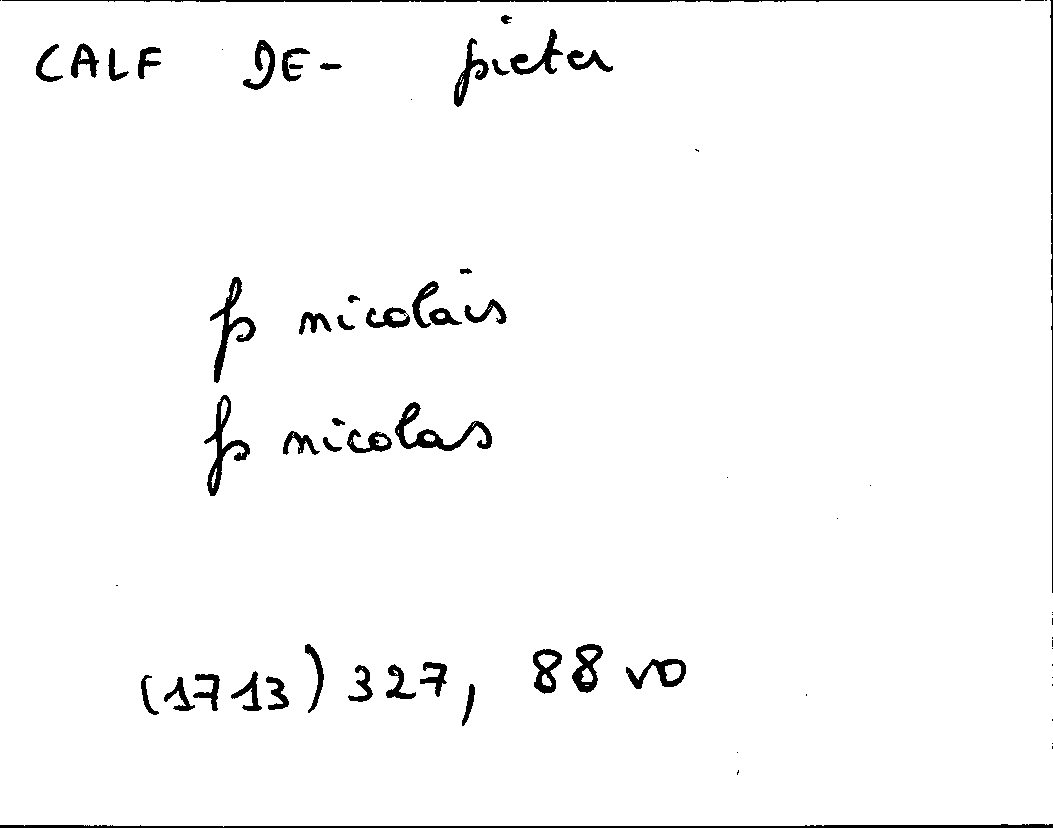 CALF DE- pieter
p nicolais
p nicolas
(1713) 327, 88 vo